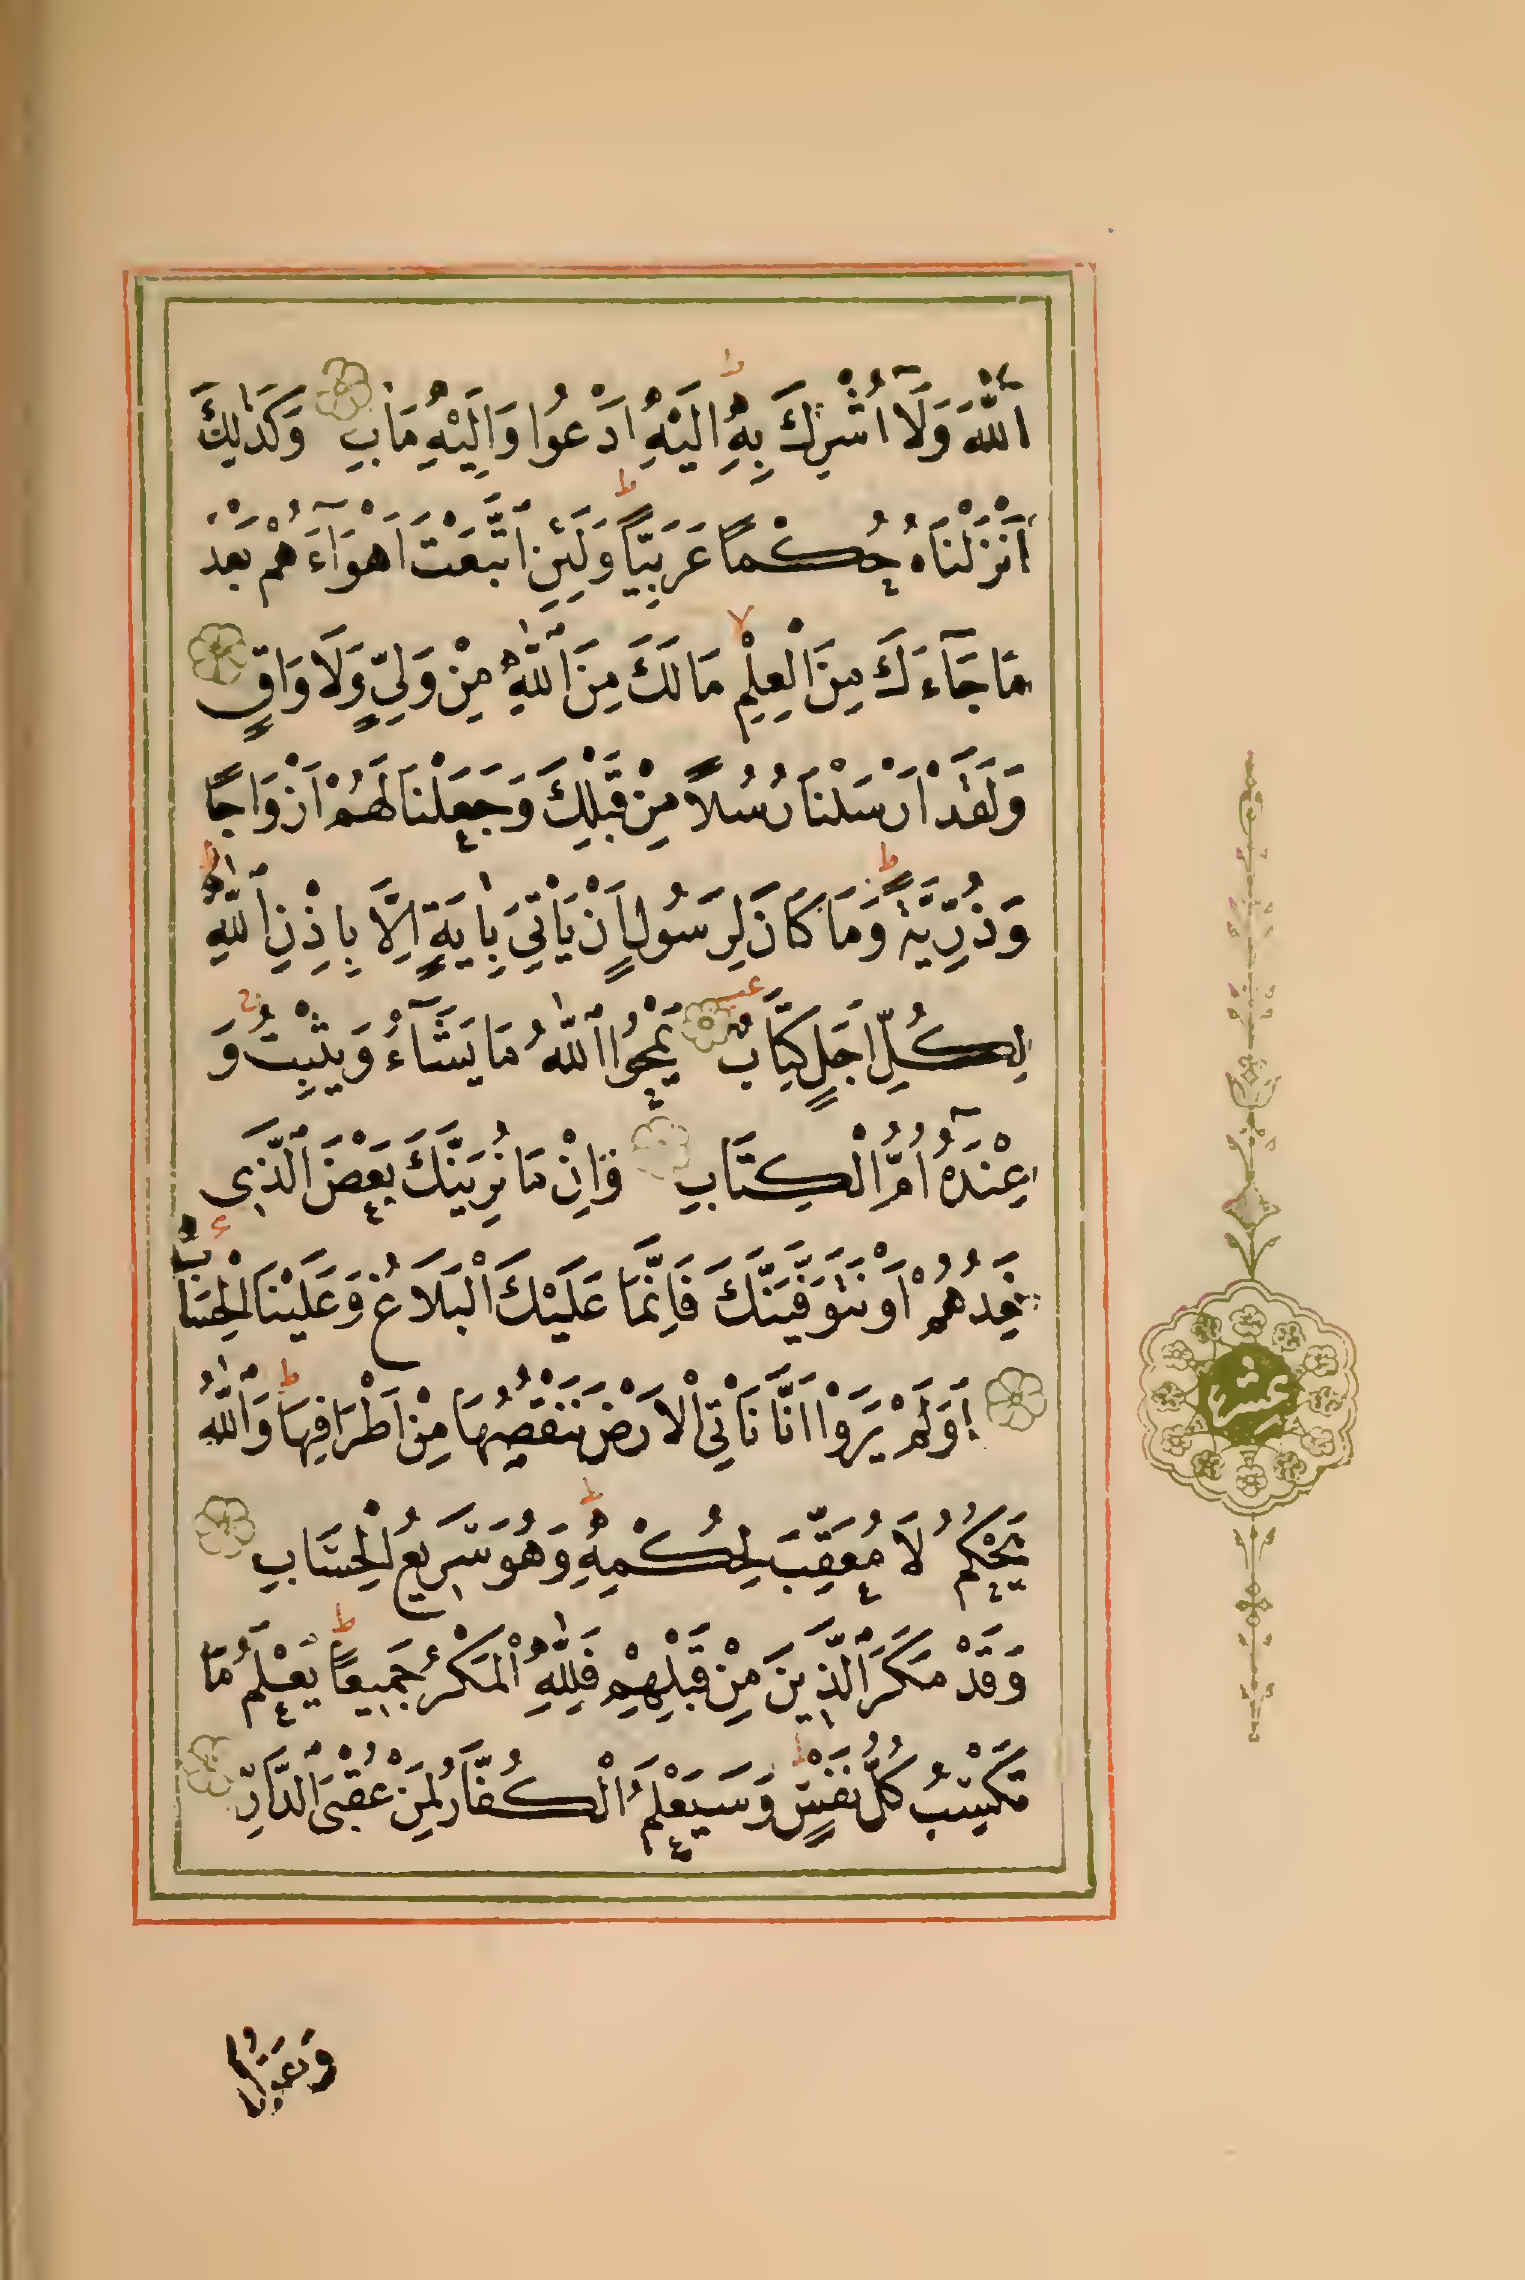 اَللّٰهَ وَلَٓا اُشْرِكَ بِهِ اِلَيْهِ اَدْعُوا وَاِلَيْهِ مَاٰبِ وَكَذٰلِكَ
اَنْزَلْنَاهُ حُكْماً عَرَبِيّاً وَلَئِنِ اتَّبَعْتَ اَهْوَٓاءَهُمْ بَعْدَ
مَا جَٓاءَكَ مِنَ الْعِلْمِ مَا لَكَ مِنَ اللّٰهِ مِنْ وَلِيٍّ وَلَا وَاقٍ
وَلَقَدْ اَرْسَلْنَا رُسُلاً مِنْ قَبْلِكَ وَجَعَلْنَا لَهُمْ اَزْوَاجاً
وَذُرِّيَّةً وَمَا كَانَ لِرَسُولٍ اَنْ يَاْتِيَ بِاٰيَةٍ اِلَّا بِاِذْنِ اللّٰهِ
لِكُلِّ اَجَلٍ كِتَابٌ يَمْحُوا اللّٰهُ مَا يَشَٓاءُ وَيُثْبِتُ وَ
عِنْدَهُٓ اُمُّ الْكِتَابِ وَاِنْ مَا نُرِيَنَّكَ بَعْضَ الَّذِى
نَعِدُهُمْ اَوْ نَتَوَفَّيَنَّكَ فَاِنَّمَا عَلَيْكَ الْبَلَاغُ وَعَلَيْنَا الْحِسَابُ
اَوَلَمْ يَرَوْا اَنَّا نَاْتِى الْاَرْضَ نَنْقُصُهَا مِنْ اَطْرَافِهَا وَاللّٰهُ
يَحْكُمُ لَا مُعَقِّبَ لِحُكْمِهِ وَهُوَ سَرِيعُ الْحِسَابِ
وَقَدْ مَكَرَ الَّذِينَ مِنْ قَبْلِهِمْ فَلِلّٰهِ الْمَكْرُ جَمِيعاً يَعْلَمُ مَا
تَكْسِبُ كُلُّ نَفْسٍ وَسَيَعْلَمُ الْكُفَّارُ لِمَنْ عُقْبَى الدَّارِ